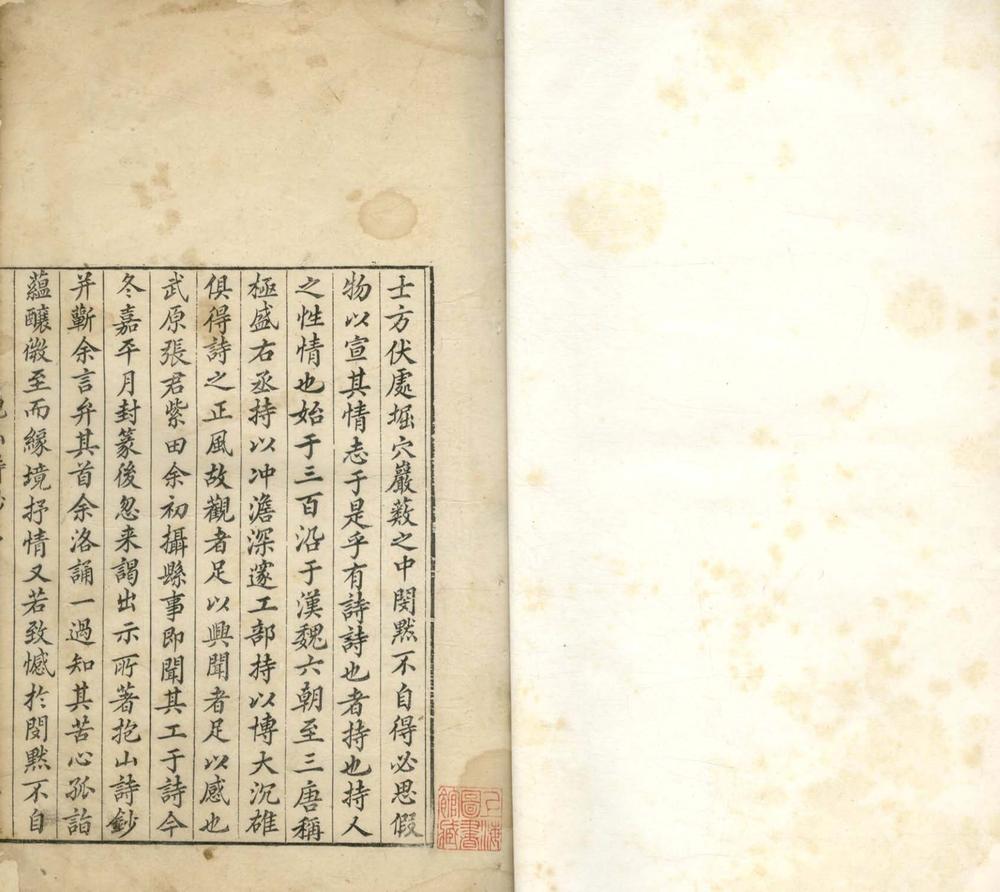 士方伏處堀穴巖薮之中閔黙不自得必思假
物以宣其情志于是乎有詩詩也者持也持人
之性情也始于三百沿于漢魏六朝至三唐稱
極盛右丞持以冲澹深邃工部持以博大沉雄
俱得詩之正風故觀者足以興聞者足以感也
武原張君紫田余初攝縣事即聞其工于詩今
冬嘉平月封篆後忽来謁出示所著抱山詩鈔
并蘄余言弁其首余洛誦一過知其苦心孤詣
蘊釀微至而緣境抒情又若致憾於閔黙不自
上海圖書館藏